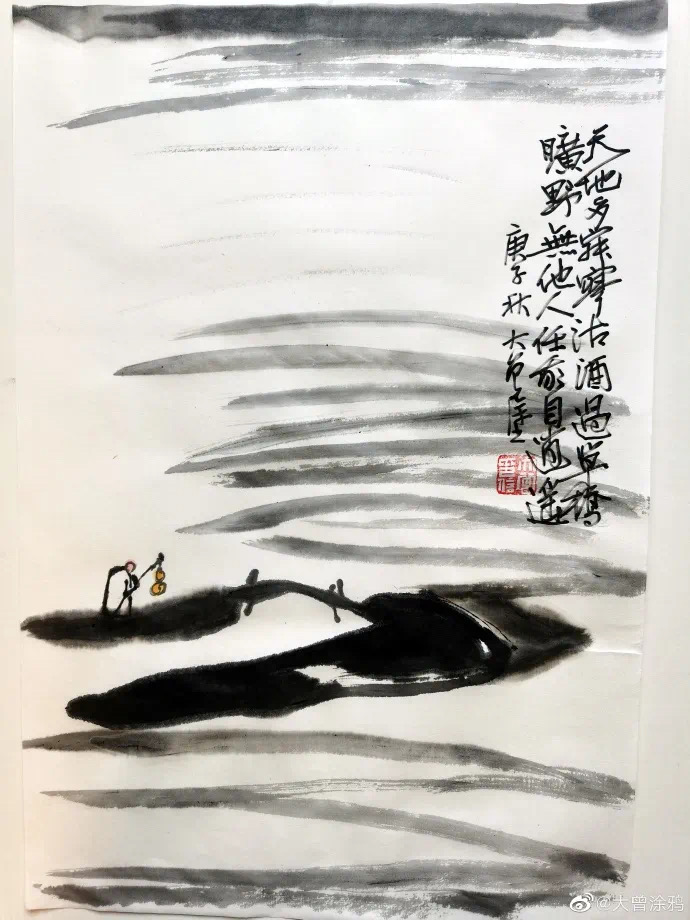 天地多寂寥沽酒過橋
曠野無他人任我自逍遙
庚子秋 大曾
@大曾涂鸦